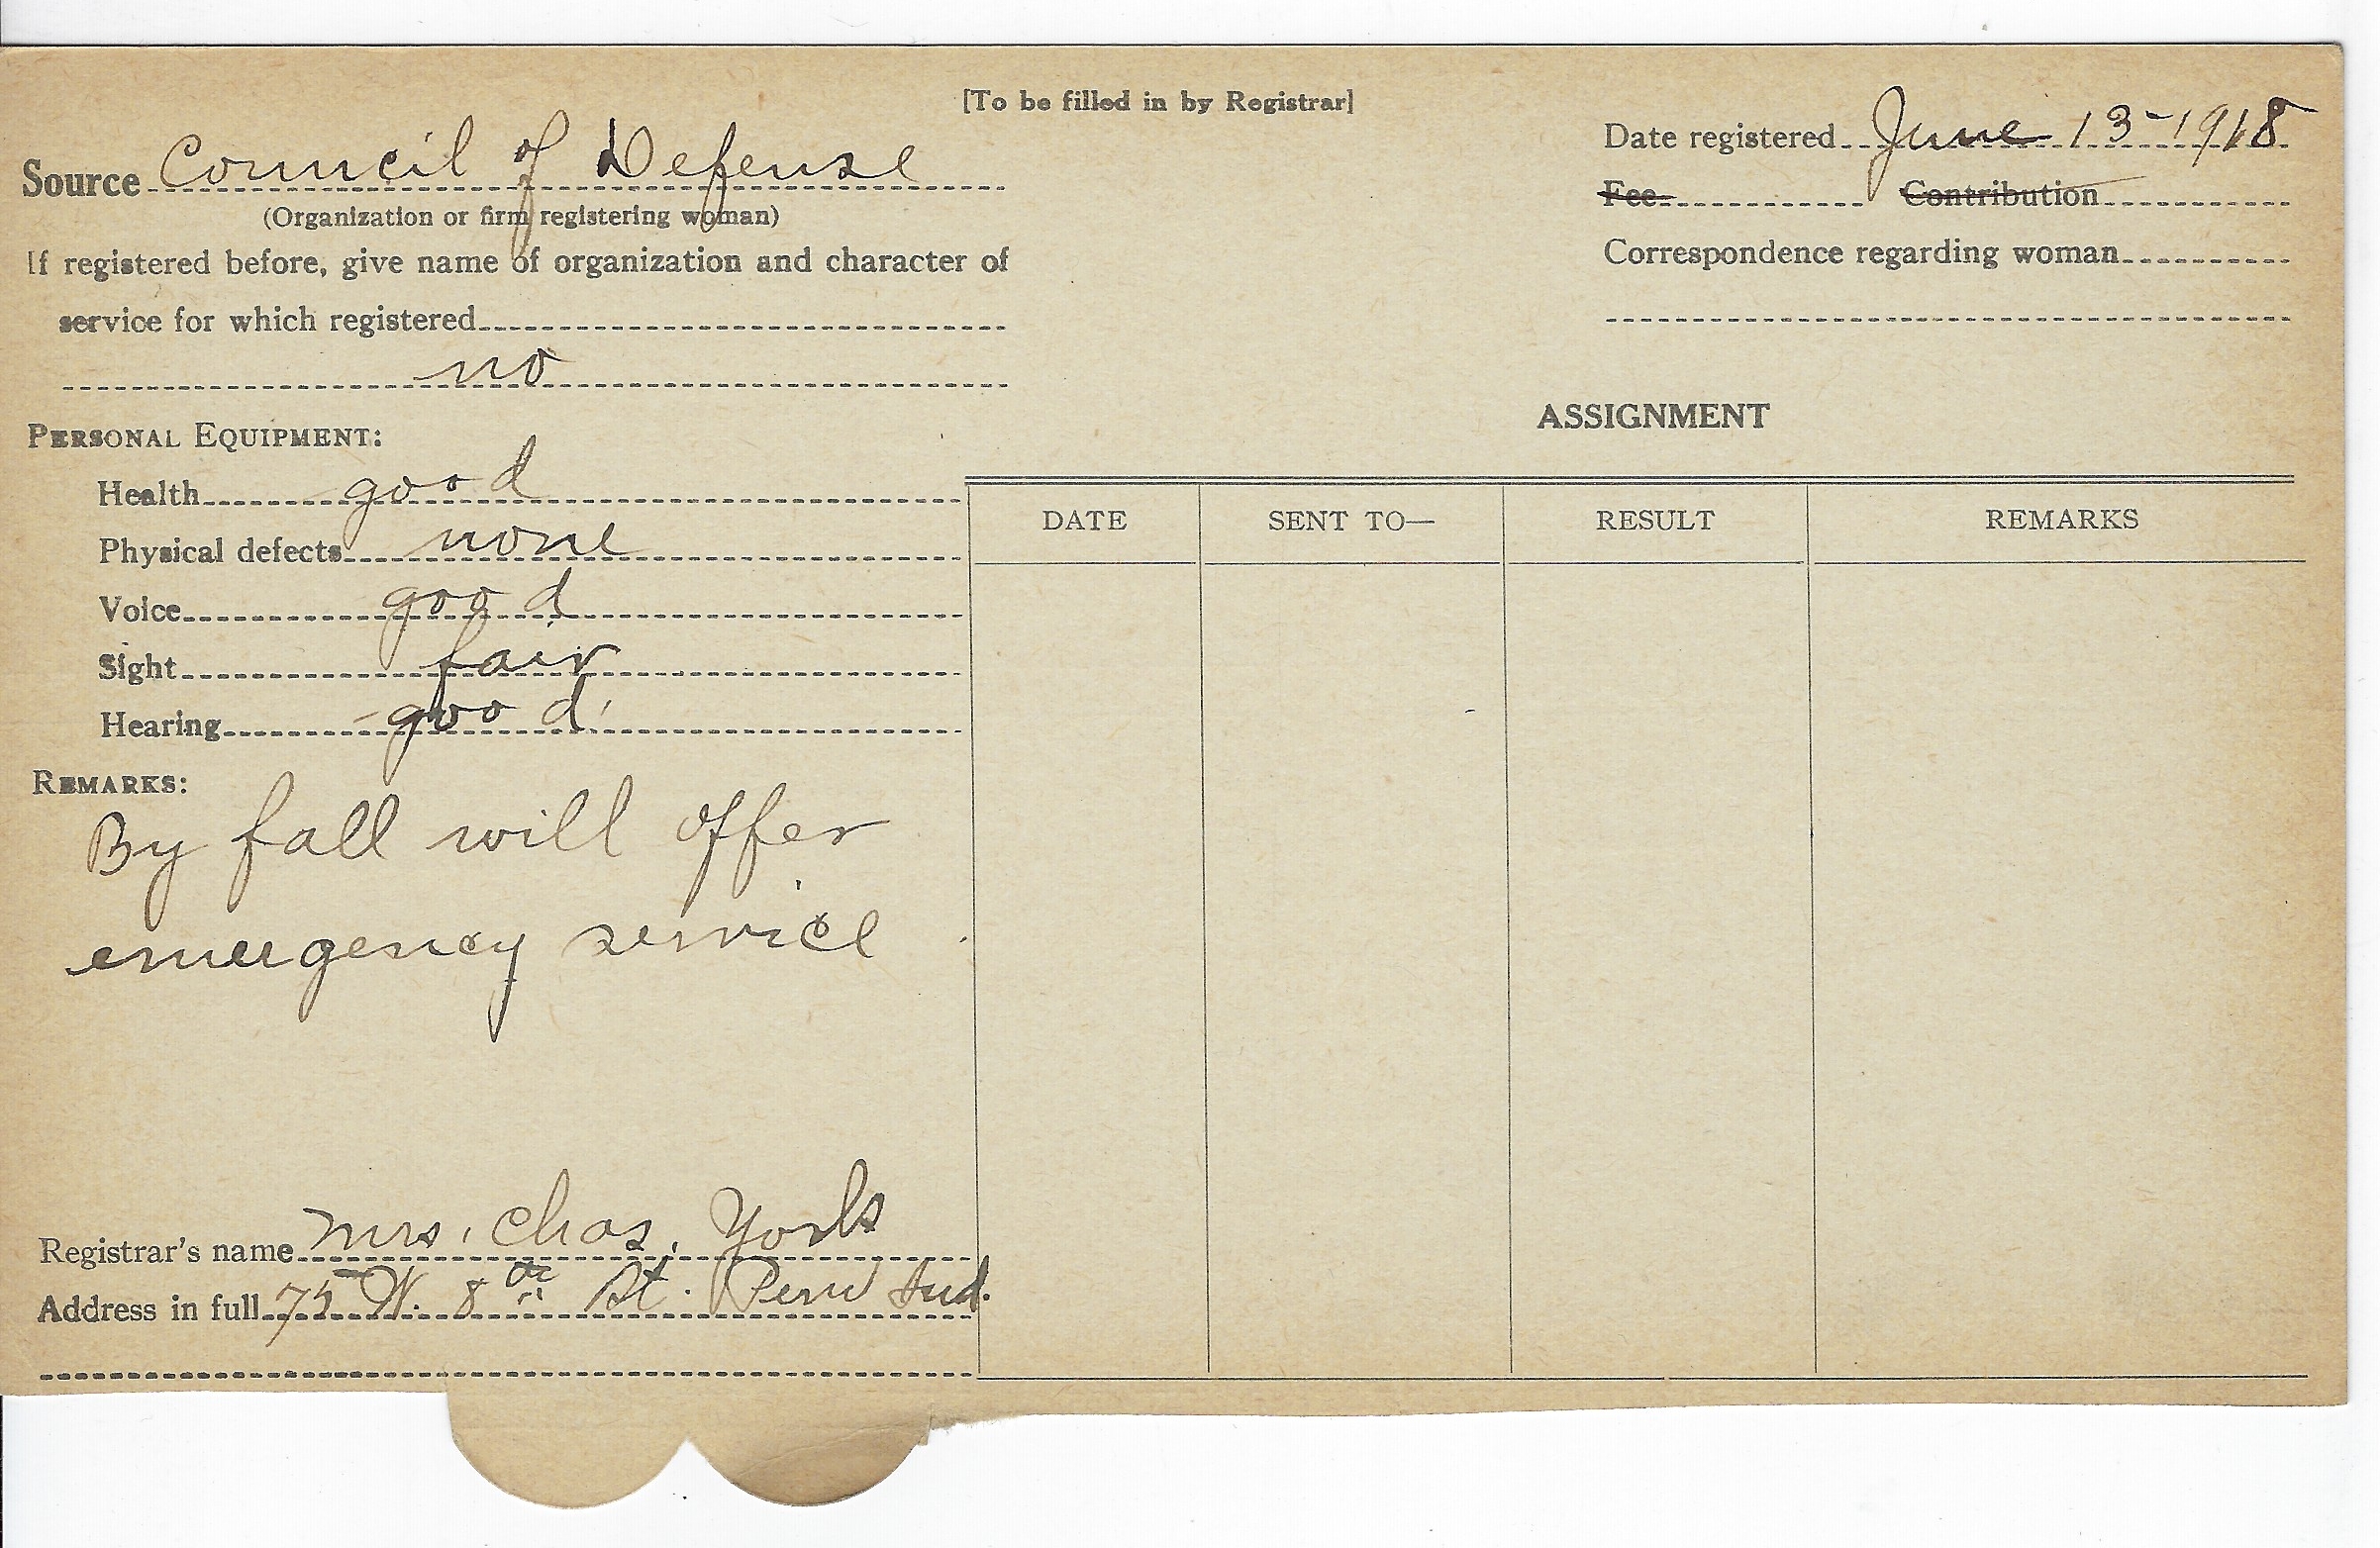 [To be filled in by Registrar]
Source Council of Defense
(Organization or firm registering woman)
If registered before, give name of organization and character of
service for which registered
no
Date registered June 13-1918
Fee Contribution
Correspondence regarding woman
PERSONAL EQUIPMENT:
Health good
Physical defects none
Voice good
Sight fair
Hearing good
REMARKS:
By fall will offer
emergency service
Registrar's name Mrs. Chas. York
Address in full 75 W. 8th St. Peru Ind.
ASSIGNMENT
DATE SENT TO— RESULT REMARKS